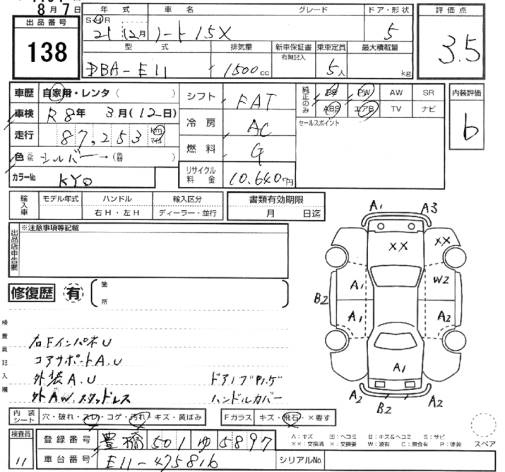 8月7日
出品番号
138
年式 車名 グレード ドア・形状
S H R
21 (12月) ノート 15X 5
型式 排気量 新車保証書 有無記入 乗車定員 最大積載量
DBA-E11 1500cc 5人 kg
評価点
3.5
車歴 自家用・レンタ( )
車検 R8年 3月(12日)
走行 87,253 km
色 シルバー→
カラーNo. KY0
シフト FAT
冷房 AC
燃料 G
リサイクル料金 10,640円
純正のみ PS PW AW SR
ABS エアB TV ナビ
セールスポイント
内装評価
6
輸入車 モデル年式 ハンドル 輸入区分
右H・左H ディーラー・並行
書類有効期限
月 日迄
出品店申告欄
※注意事項等記載
修復歴 有 箇所
検査員記入欄
右FインパネU
コアサポートA.U
外装A.U ドアノブカケ
外AW.スタッドレス ハンドルカバー
A1 A3
XX XX
A1 W2
B2
A1 A2
A1
A2 B2 A2
内装シート 穴・破れ・スレ・コゲ・汚れ・キズ・黄ばみ
Fガラス キズ・飛石・×要す
検査員
11
登録番号 豊橋 501 ゆ 5897
車台番号 E11-475816
シリアルNo.
A:キズ U:ヘコミ B:キズ&ヘコミ S:サビ
XX:交換済 X:要交換 W:波有 C:腐食有 P:塗装
スペア